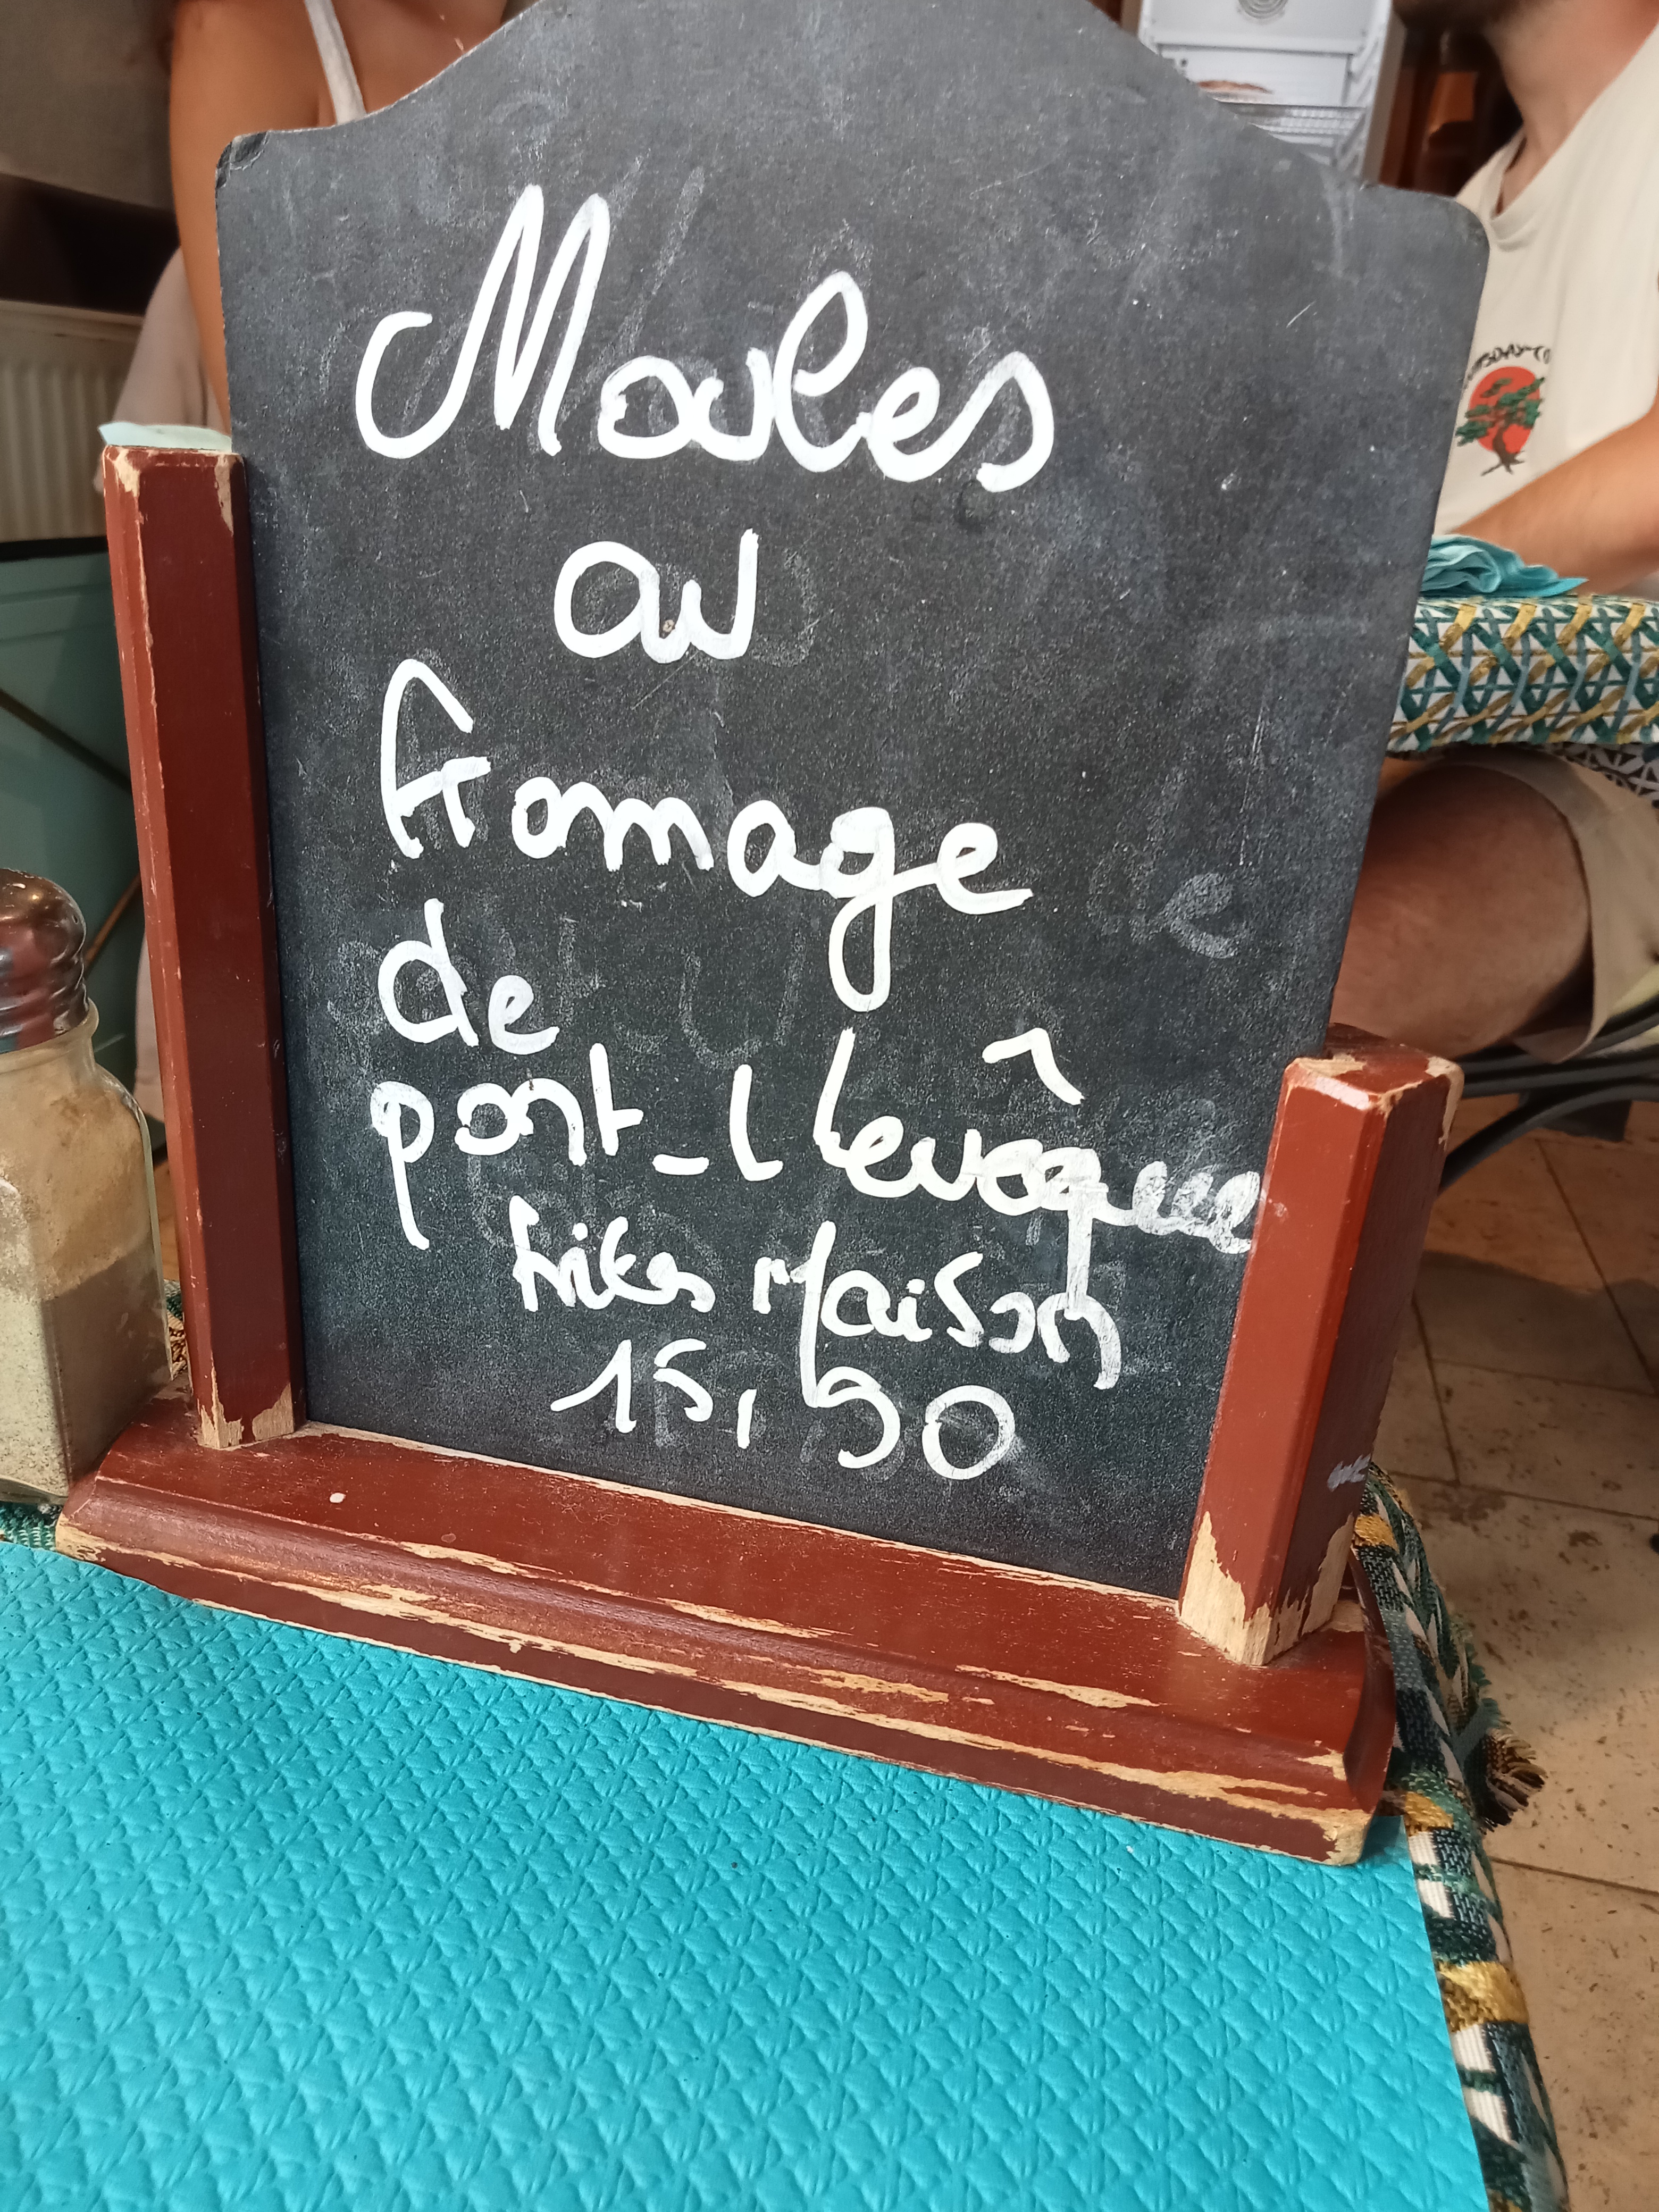 Moules
au
fromage
de
pont-l'levêque
frites Maison
15,90